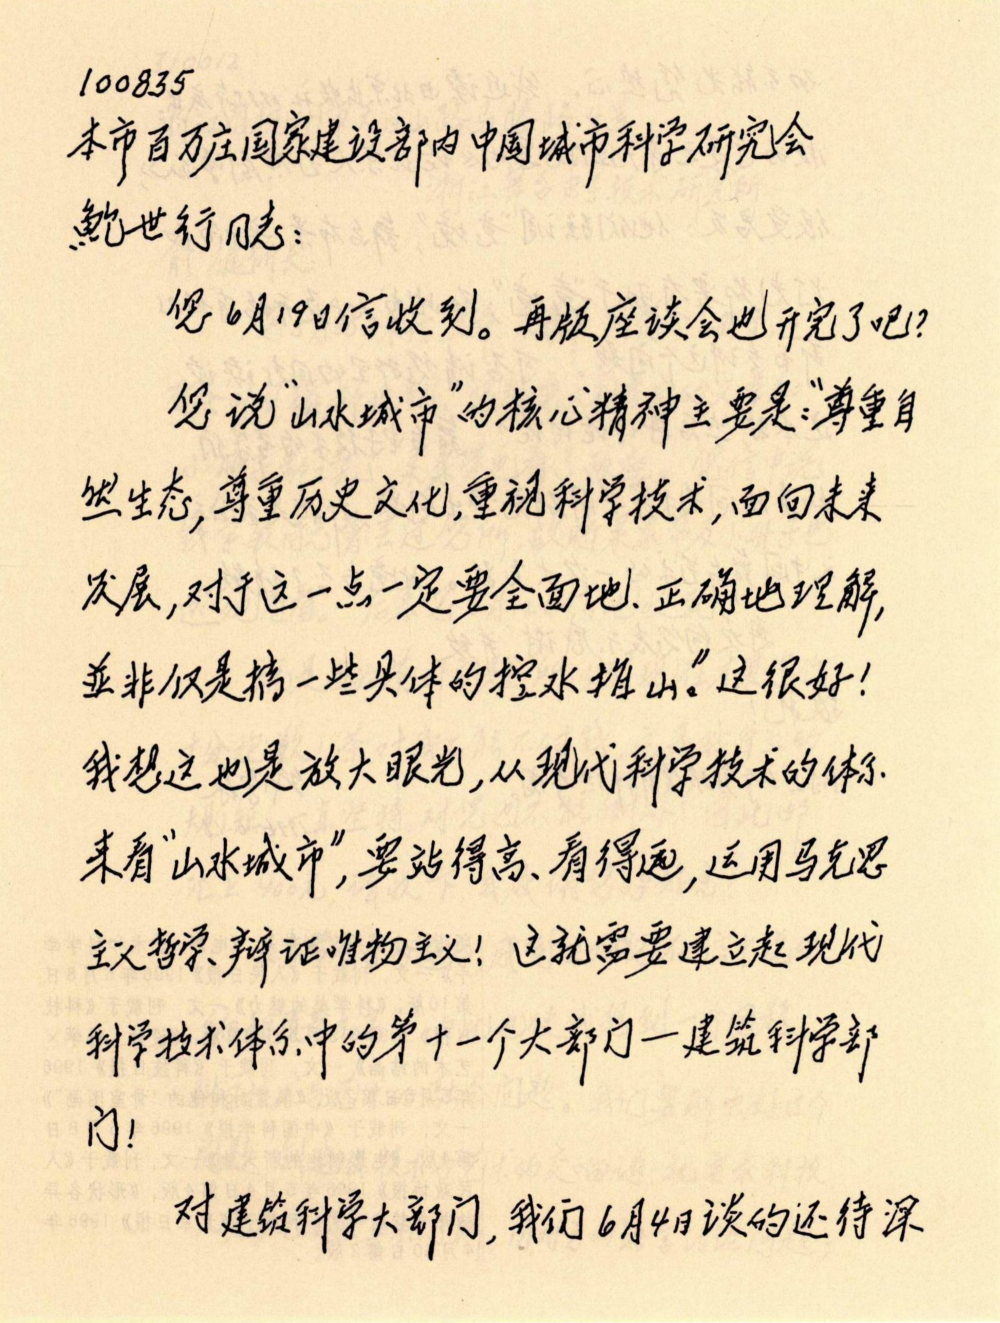 100835
本市百万庄国家建设部内中国城市科学研究会
鲍世行同志：
您6月19日信收到。再版座谈会也开完了吧？
您说“山水城市”的核心精神主要是：“尊重自
然生态，尊重历史文化，重视科学技术，面向未来
发展，对于这一点一定要全面地、正确地理解，
並非仅是搞一些具体的挖水堆山。”这很好！
我想这也是放大眼光，从现代科学技术的体系
来看“山水城市”，要站得高、看得远，运用马克思
主义哲学、辩证唯物主义！这就需要建立起现代
科学技术体系中的第十一个大部门—建筑科学部
门！
对建筑科学大部门，我们6月4日谈的还待深